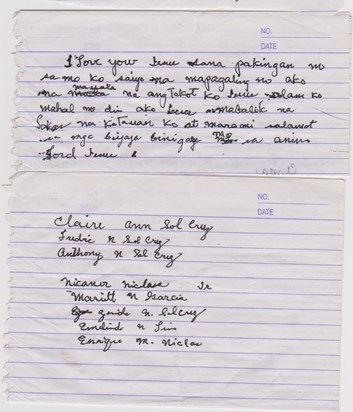 NO.
DATE
I Love your Jesus sana pakingan mo
sa mo ko saiyo na mapagaling mo ako
na mawala na ang Takot ko Jesus alam ko
mahal mo din ako Jesus mabalik na
na Katauan ko at marami salamat
sa mga biyaya binigay mo sa amin
Lord Jesus
NO.
DATE
Claire Ann Sol Cruz
Fredric N Sol Cruz
Anthony N Sol Cruz
Nicanor Niclas Jr
Maritt N Garcia
N. Sol cruz
N
Enrique M. Niclas